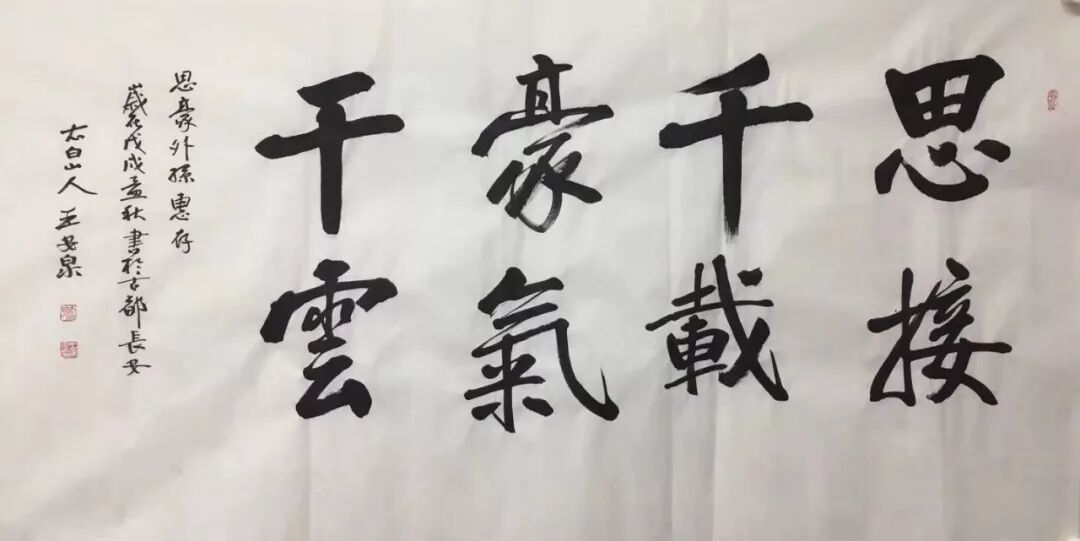 思接
千載
豪氣
干雲
思豪外孫惠存
歲在戊戌孟秋書於古都長安
太白山人王安泉